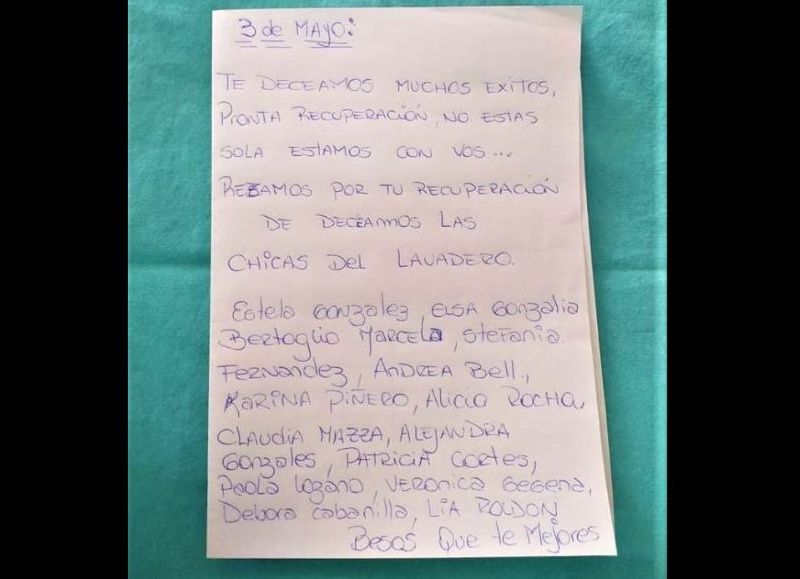 3 de MAYO:
TE DECEAMOS MUCHOS EXITOS,
PRONTA RECUPERACIÓN, NO ESTAS
SOLA ESTAMOS CON VOS...
REZAMOS POR TU RECUPERACIÓN
DE DECEAMOS LAS
CHICAS DEL LAVADERO.
Estela Gonzalez, ELSA Gonzalia
Bertoglio Marcela, Stefania
Fernandez, ANDREA Bell,
KARINA PIÑERO, Alicia ROCHA,
CLAUDIA MAZZA, ALEJANDRA
Gonzales, PATRICIA Cortes,
Paola Lozano, VERONICA Gegena,
Debora Cabanilla, LIA ROLDON
Besos Que te Mejores